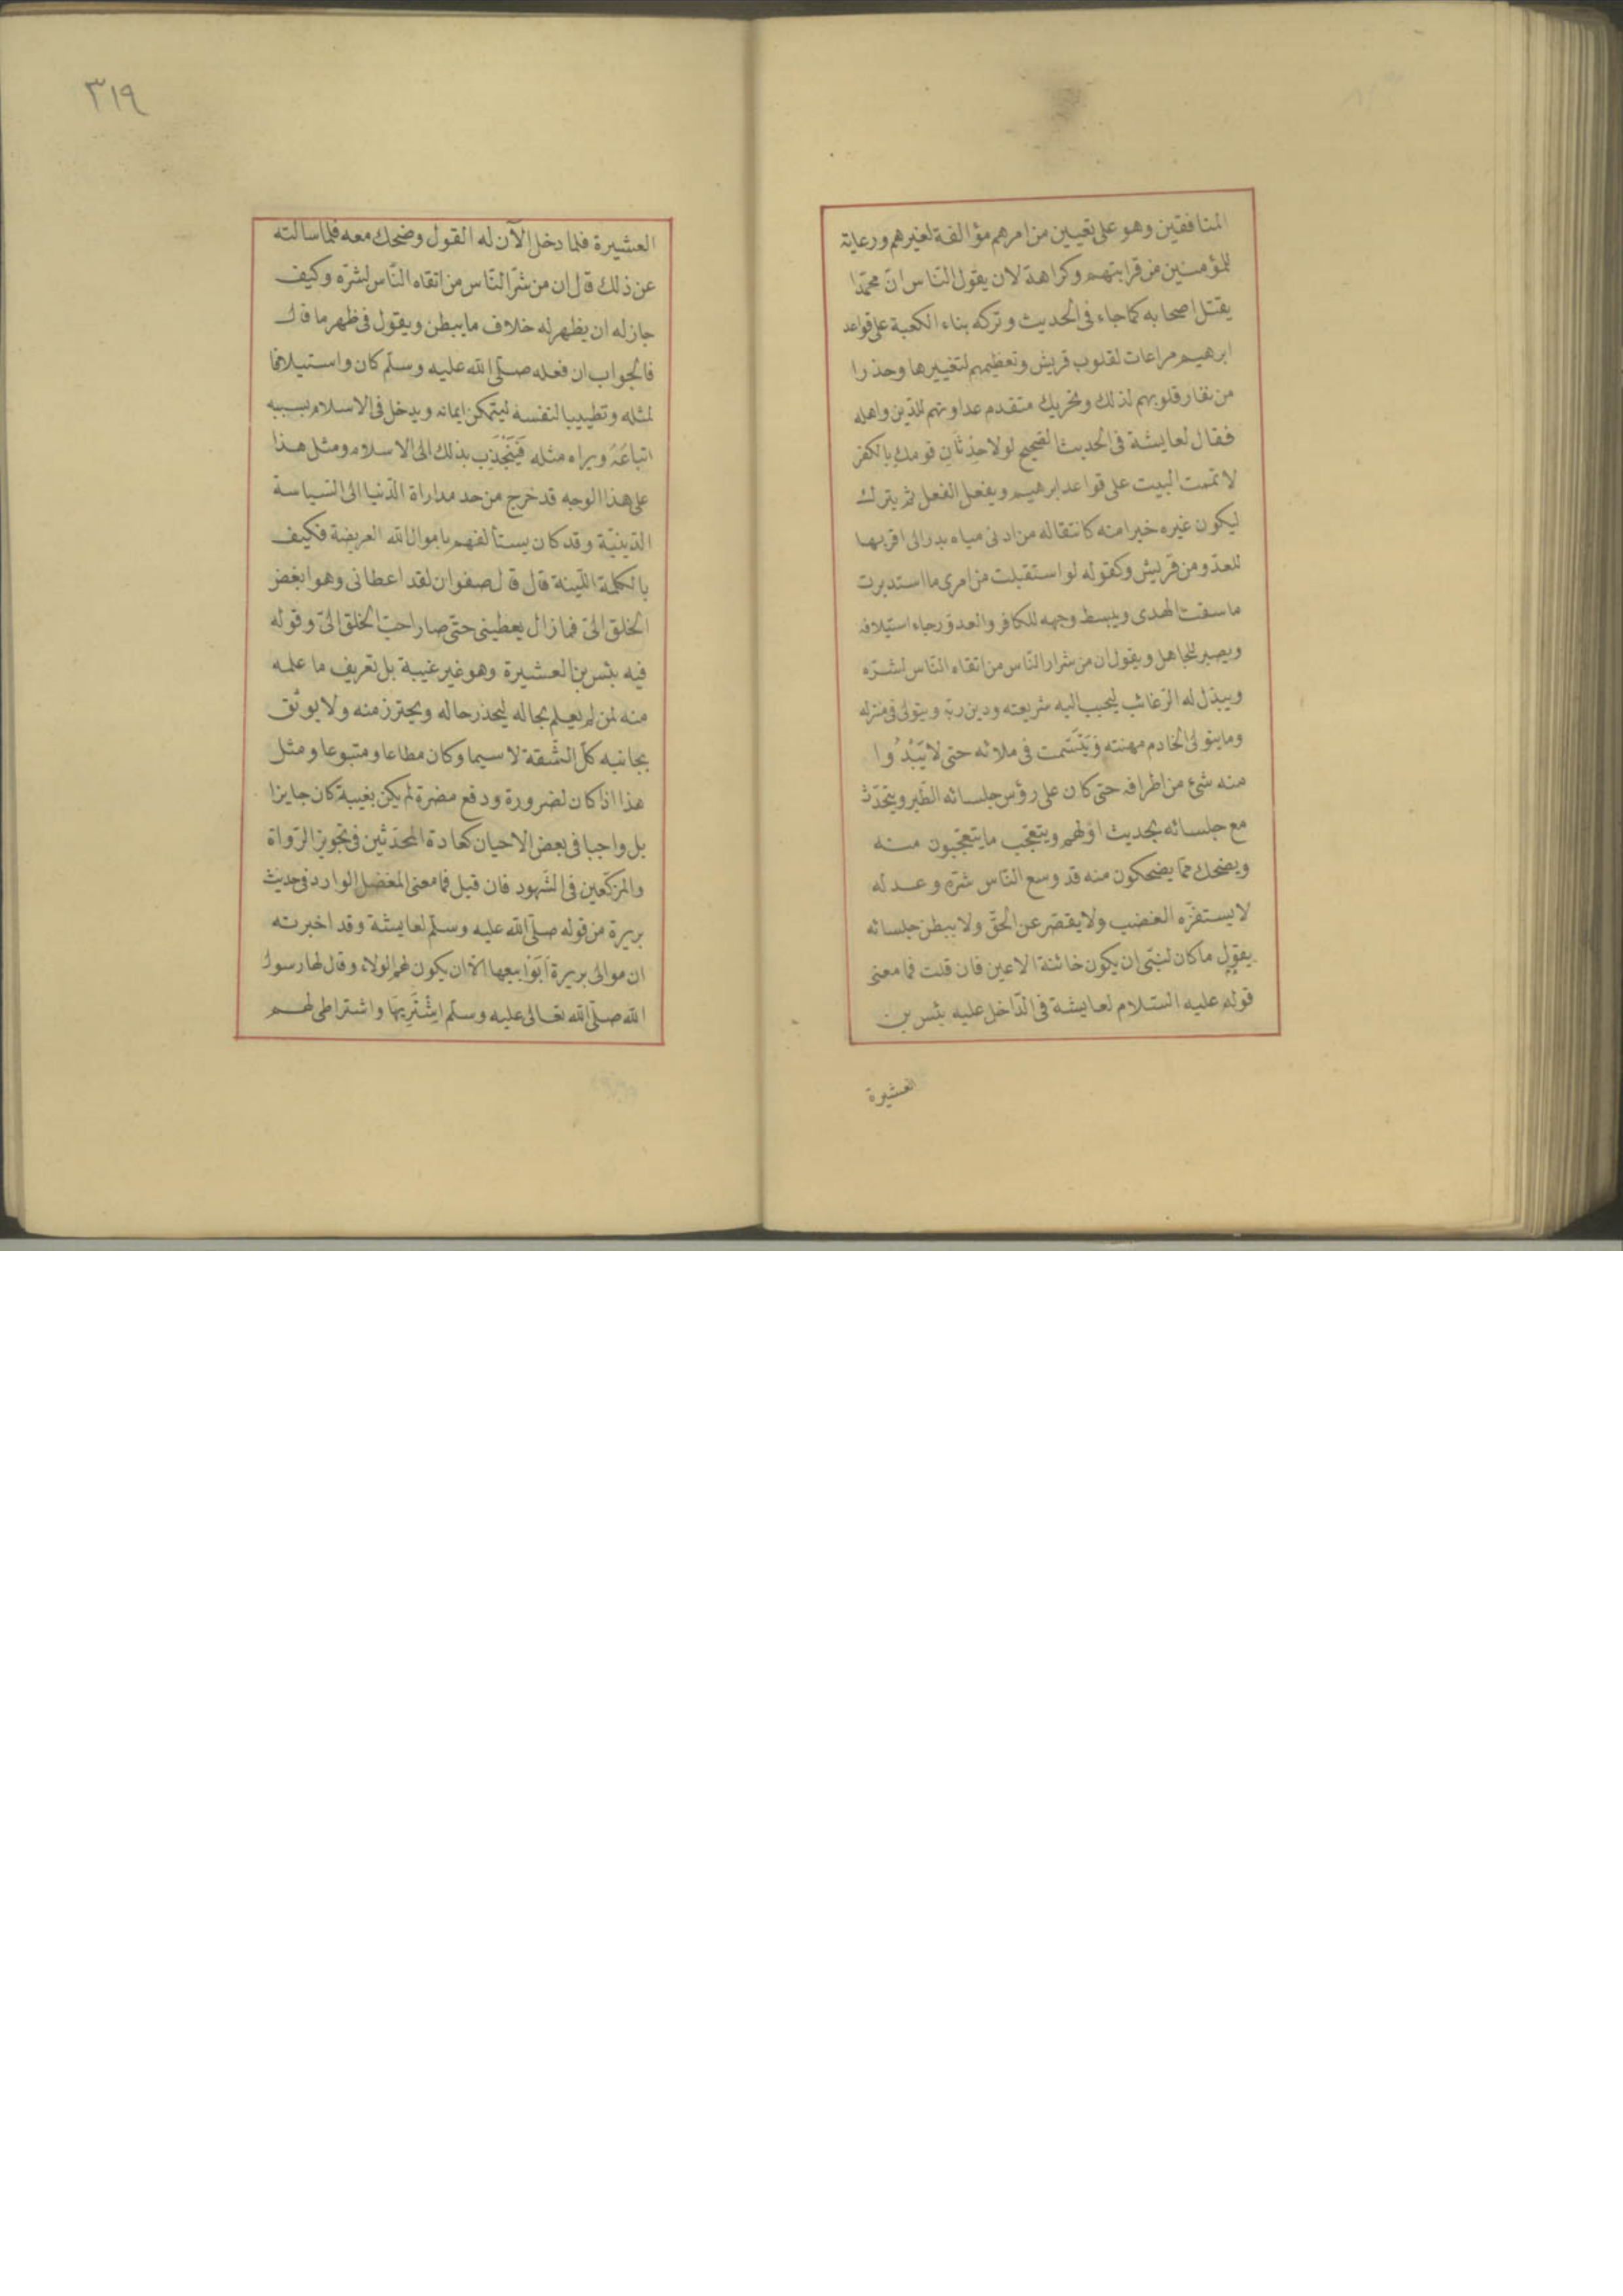 المنافقين وهو على يقين من امرهم مؤالفة لغيرهم ورعاية
للمؤمنين من قرابتهم وكراهة لان يقول الناس انّ محمّدا
يقتل اصحابه كما جاء فى الحديث وتركه بناء الكعبة على قواعد
ابرهيم مراعات لقلوب قريش وتعظيمهم لتغييرها وحذرا
من نفار قلوبهم لذلك وتحريك متقدم عداوتهم للدّين واهله
فقال لعايشة فى الحديث الصّحيح لولا حِدْثَانِ قومك بالكفر
لاتممت البيت على قواعد ابرهيم ويفعل الفعل ثم يترك
ليكون غيره خيرا منه كانتقاله من ادنى مياه بدر الى اقربها
للعدّو من قريش وكقوله لو استقبلت من امرى ما استدبرت
ما سقت الهدى ويبسط وجهه للكافر والعدوّ رجاء استيلافه
ويصبر للجاهل ويقول ان من شرار النّاس من اتقاه النّاس لشرّه
ويبذل له الرّغائب ليحبب اليه شريعته ودين ربّه ويتولى فى منزله
وما يتولى الخادم مهنته وَيَتَسَّمت فى ملائه حتى لا يَبْدُوا
منه شئ من اطرافه حتى كان على رؤس جلسائه الطّير ويتحدّث
مع جلسائه بحديث اوّلهم ويتعجّب ما يتعجّبون منه
ويضحك ممّا يضحكون منه قد وسع النّاس شرّه وعدله
لا يستفزّه الغضب ولا يقصّر عن الحقّ ولا يبطن جلسائه
يقول ما كان لنبّى ان يكون خائنة الاعين فان قلت فما معنى
قوله عليه السّلام لعايشة فى الدّاخل عليه بئس بن
العشيرة
٣١٩
العشيرة فلما دخل الآن له القول وضحك معه فلما سالته
عن ذلك قال ان من شرّ النّاس من اتقاه النّاس لشرّه وكيف
جاز له ان يظهر له خلاف ما يبطن ويقول فى ظهر ما قال
فالجواب ان فعله صلّى الله عليه وسلّم كان واستيلافا
لمثله وتطييبا لنفسه ليتمكن ايمانه ويدخل فى الاسلام بسببه
اتباعَهُ ويراه مثله فَيَنْجَذِب بذلك الى الاسلام ومثل هذا
على هذا الوجه قد خرج من حد مداراة الدّنيا الى السّياسة
الدّينيّة وقد كان يستألفهم باموال الله العريضة فكيف
بالكلمة اللّينة قال قال صفوان لقد اعطانى وهو ابغض
الخلق الىّ فما زال يعطينى حتّى صار احبّ الخلق الىّ وقوله
فيه بئس بن العشيرة وهو غير غيبة بل تعريف ما علمه
منه لمن لم يعلم بحاله ليحذر حاله ويحترز منه ولا يوثق
بجانبه كلّ الثّقة لا سيما وكان مطاعا ومتبوعا ومثل
هذا اذا كان لضرورة ودفع مضرة لم يكن بغيبة كان جايزا
بل واجبا فى بعض الاحيان كعادة المحدّثين فى تجويز الرّواة
والمزكّعين فى الشّهود فان قيل فما معنى المعضل الوارد فى حديث
بريرة من قوله صلّى الله عليه وسلّم لعايشة وقد اخبرته
ان موالى بريرة اَبَوْا بيعها الاّ ان يكون لهم الولاء وقال لها رسول
الله صلّى الله تعالى عليه وسلّم اِشْتَرِيهَا واشتراطى لهم